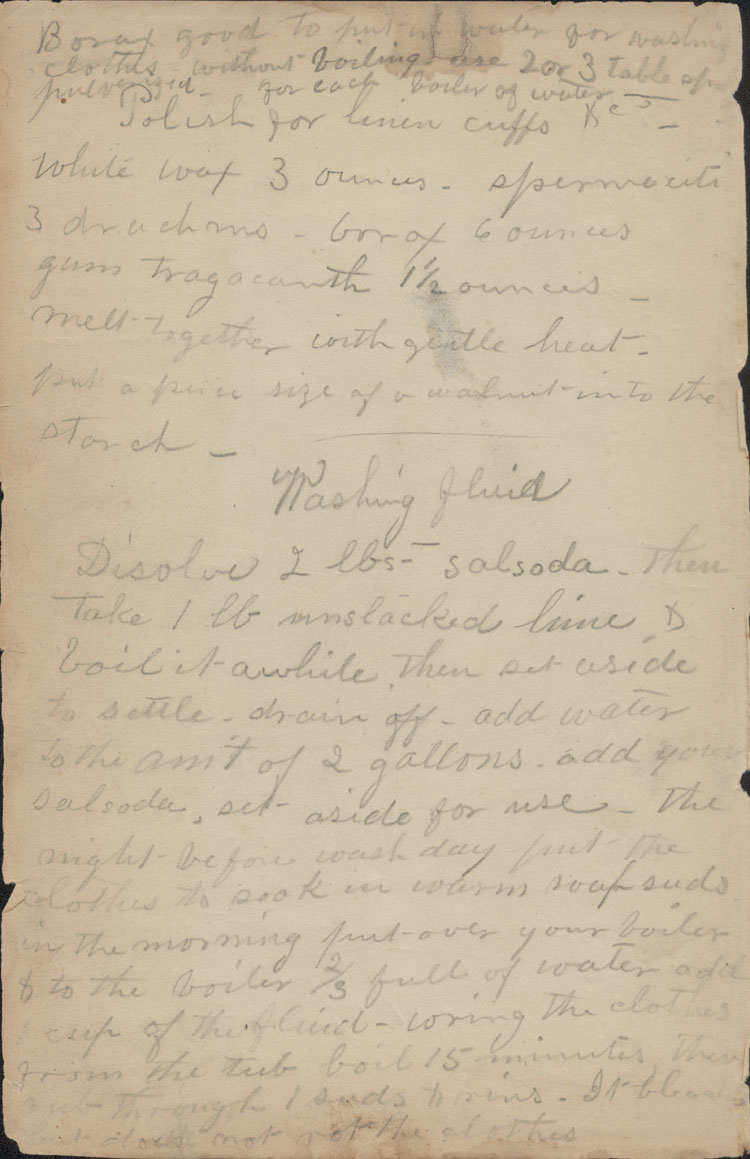 Borax good to put in water for washing
clothes without boiling use 2 or 3 table spn
pulverized - for each boiler of water
Polish for linen cuffs &c -
White wax 3 ounces - spermaciti
3 drachms - borax 6 ounces
gum tragacanth 1½ ounces -
melt together with gentle heat -
put a piece size of a walnut into the
starch -
Washing fluid
Disolve 2 lbs - salsoda - then
take 1 lb unslacked lime &
boil it awhile then set aside
to settle - drain off - add water
to the am't of 2 gallons. add your
salsoda, set aside for use - the
night before wash day put the
clothes to soak in warm soap suds
in the morning put over your boiler
& to the boiler ⅔ full of water add
1 cup of the fluid - wring the clothes
from the tub boil 15 minutes then
rub through 1 suds & rins - It bleaches
but does not rot the clothes